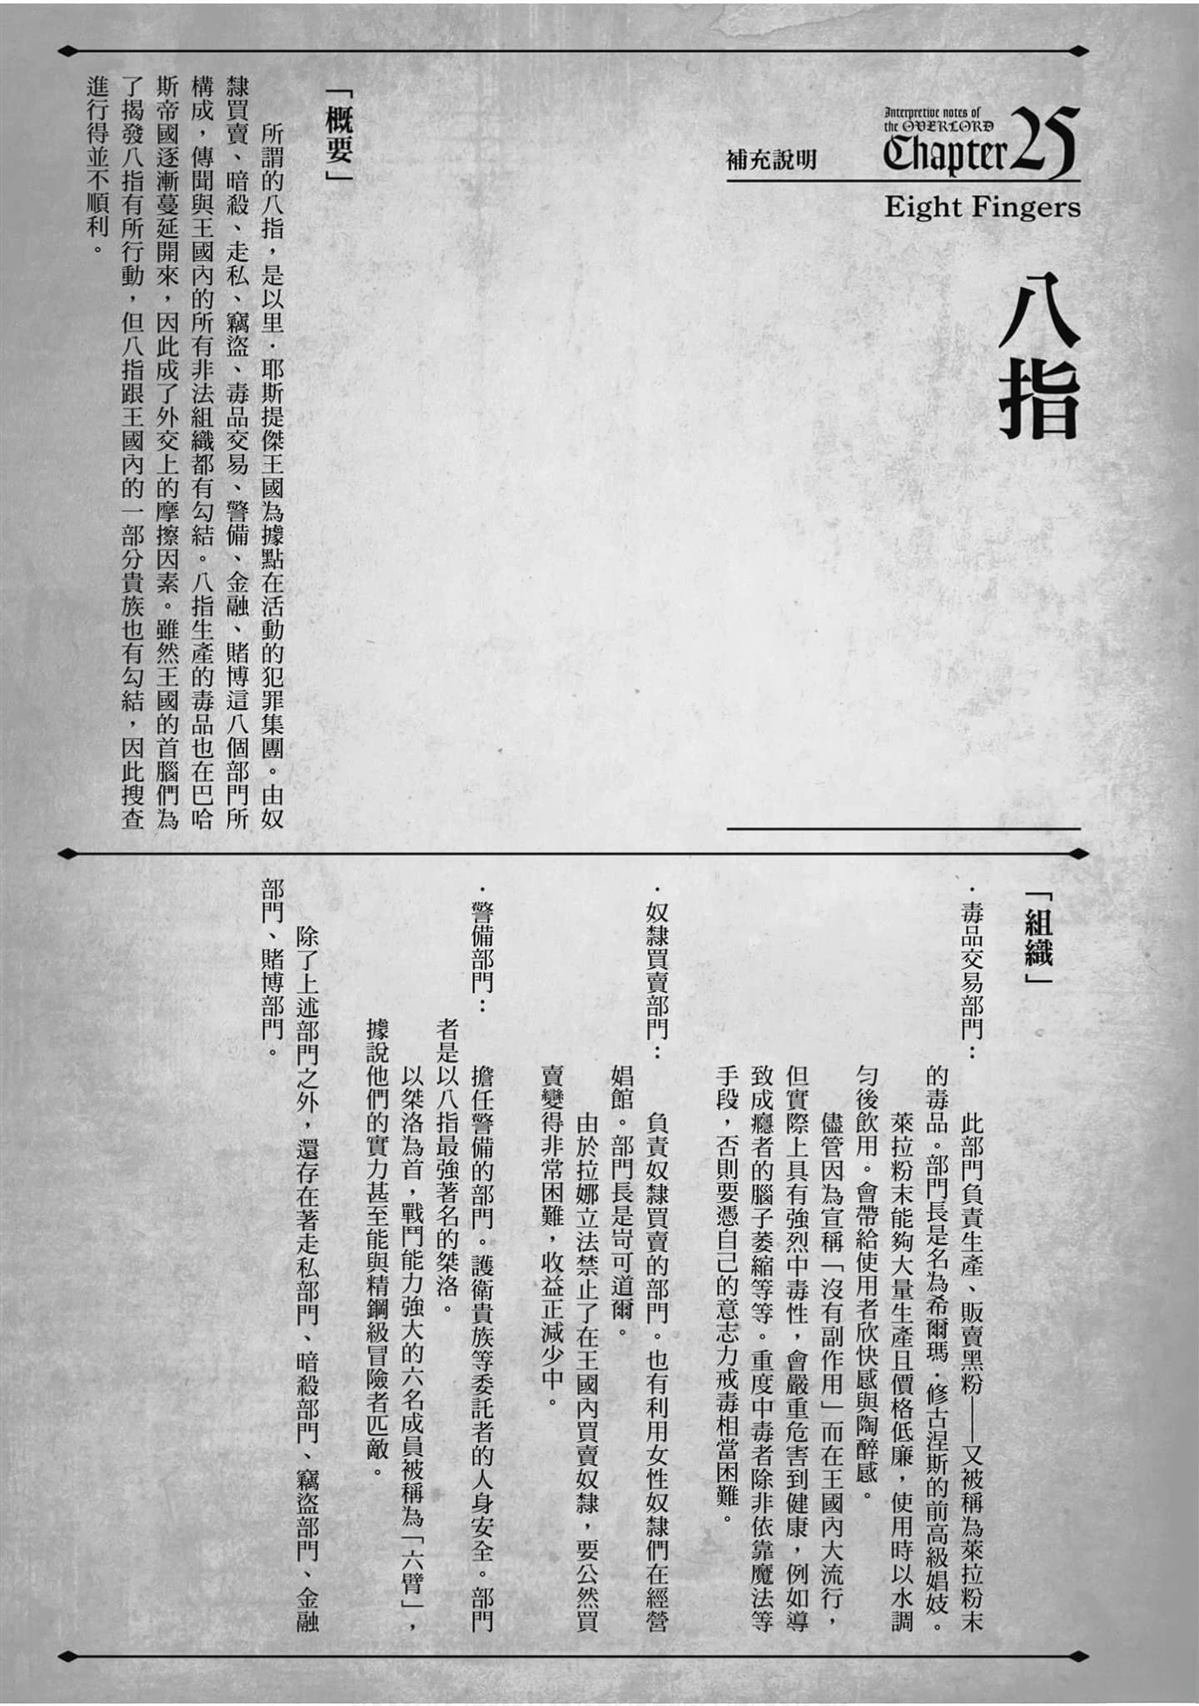 Interpretive notes of
the OVERLORD
Chapter 25
補充說明
Eight Fingers
八指
「概要」
所謂的八指，是以里．耶斯提傑王國為據點在活動的犯罪集團。由奴
隸買賣、暗殺、走私、竊盜、毒品交易、警備、金融、賭博這八個部門所
構成，傳聞與王國內的所有非法組織都有勾結。八指生產的毒品也在巴哈
斯帝國逐漸蔓延開來，因此成了外交上的摩擦因素。雖然王國的首腦們為
了揭發八指有所行動，但八指跟王國內的一部分貴族也有勾結，因此搜查
進行得並不順利。
「組織」
．毒品交易部門：此部門負責生產、販賣黑粉——又被稱為萊拉粉末
的毒品。部門長是名為希爾瑪．修古涅斯的前高級娼妓。
萊拉粉末能夠大量生產且價格低廉，使用時以水調
勻後飲用。會帶給使用者欣快感與陶醉感。
儘管因為宣稱「沒有副作用」而在王國內大流行，
但實際上具有強烈中毒性，會嚴重危害到健康，例如導
致成癮者的腦子萎縮等等。重度中毒者除非依靠魔法等
手段，否則要憑自己的意志力戒毒相當困難。
．奴隸買賣部門：負責奴隸買賣的部門。也有利用女性奴隸們在經營
娼館。部門長是岢可道爾。
由於拉娜立法禁止了在王國內買賣奴隸，要公然買
賣變得非常困難，收益正減少中。
．警備部門：擔任警備的部門。護衛貴族等委託者的人身安全。部門
者是以八指最強著名的桀洛。
以桀洛為首，戰鬥能力強大的六名成員被稱為「六臂」，
據說他們的實力甚至能與精鋼級冒險者匹敵。
除了上述部門之外，還存在著走私部門、暗殺部門、竊盜部門、金融
部門、賭博部門。